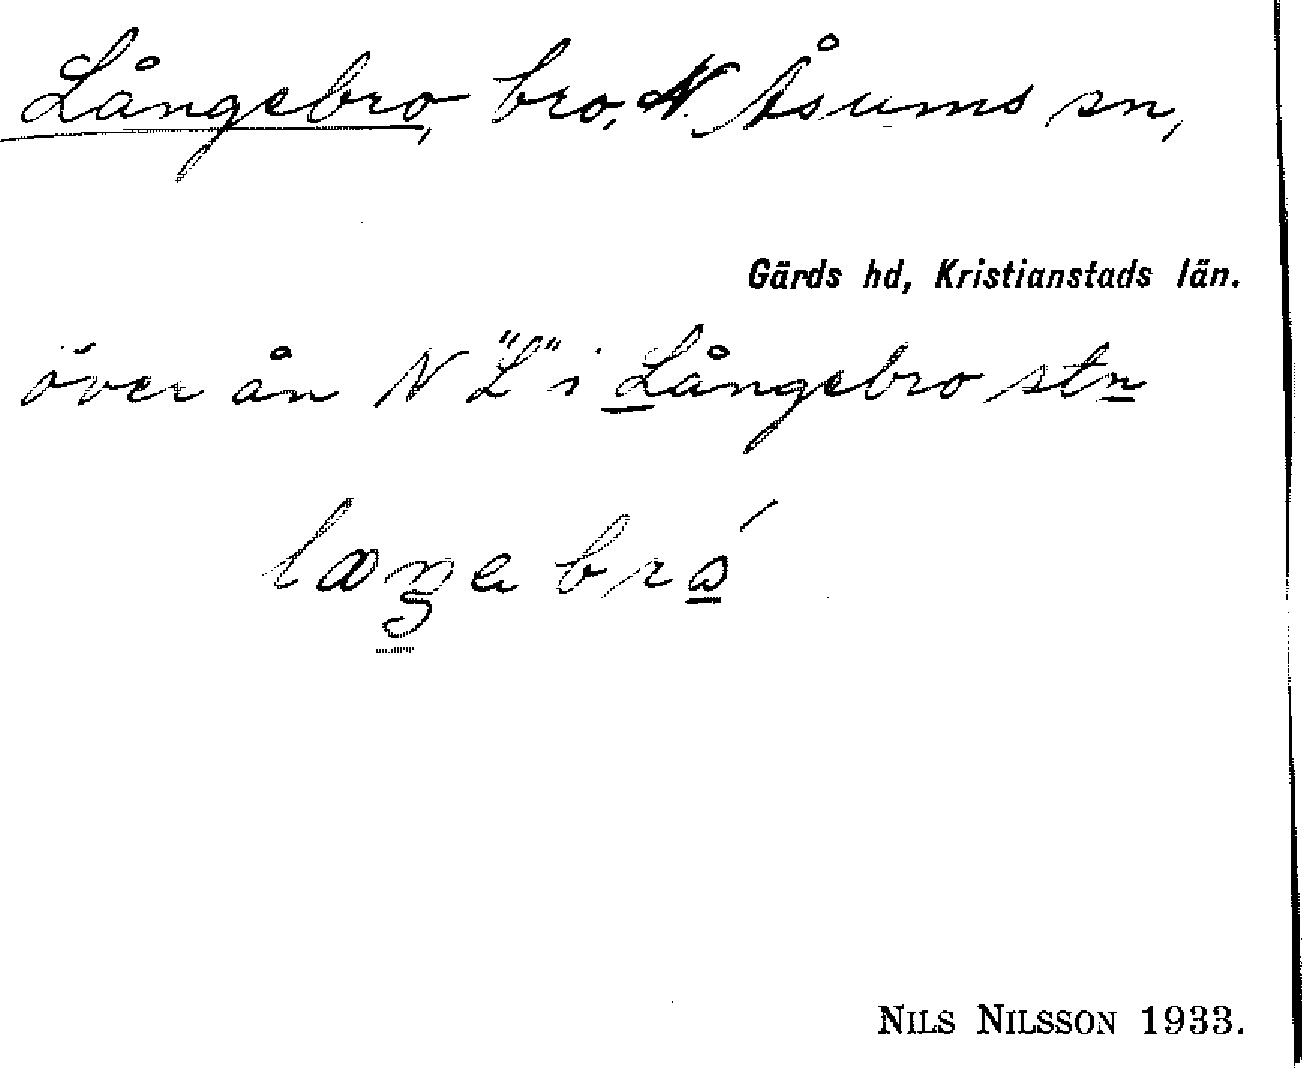 Långebro, bro, N. Åsums sn,
Gärds hd, Kristianstads län.
över ån N "L" i Långebro stn
NILS NILSSON 1933.